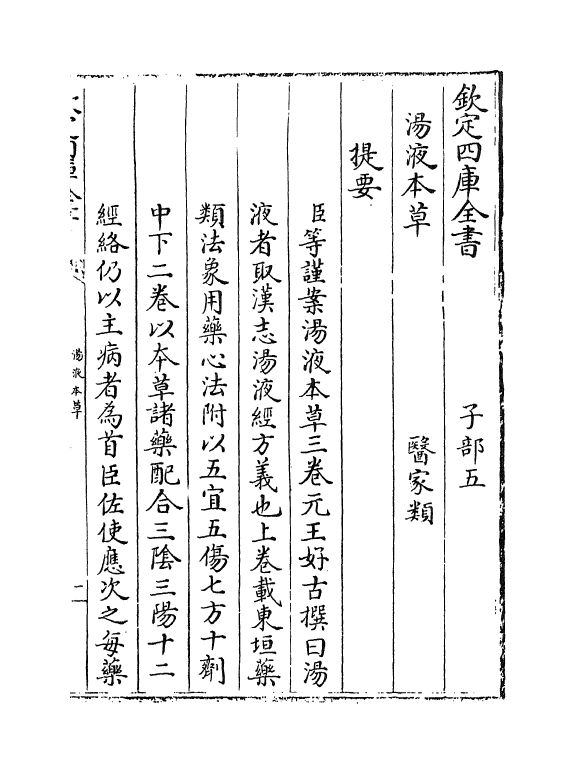 欽定四庫全書　子部五
湯液本草　醫家類
提要
臣等謹案湯液本草三卷元王好古撰曰湯
液者取漢志湯液經方義也上卷載東垣藥
類法象用藥心法附以五宜五傷七方十劑
中下二卷以本草諸藥配合三陰三陽十二
經絡仍以主病者為首臣佐使應次之每藥
湯液本草